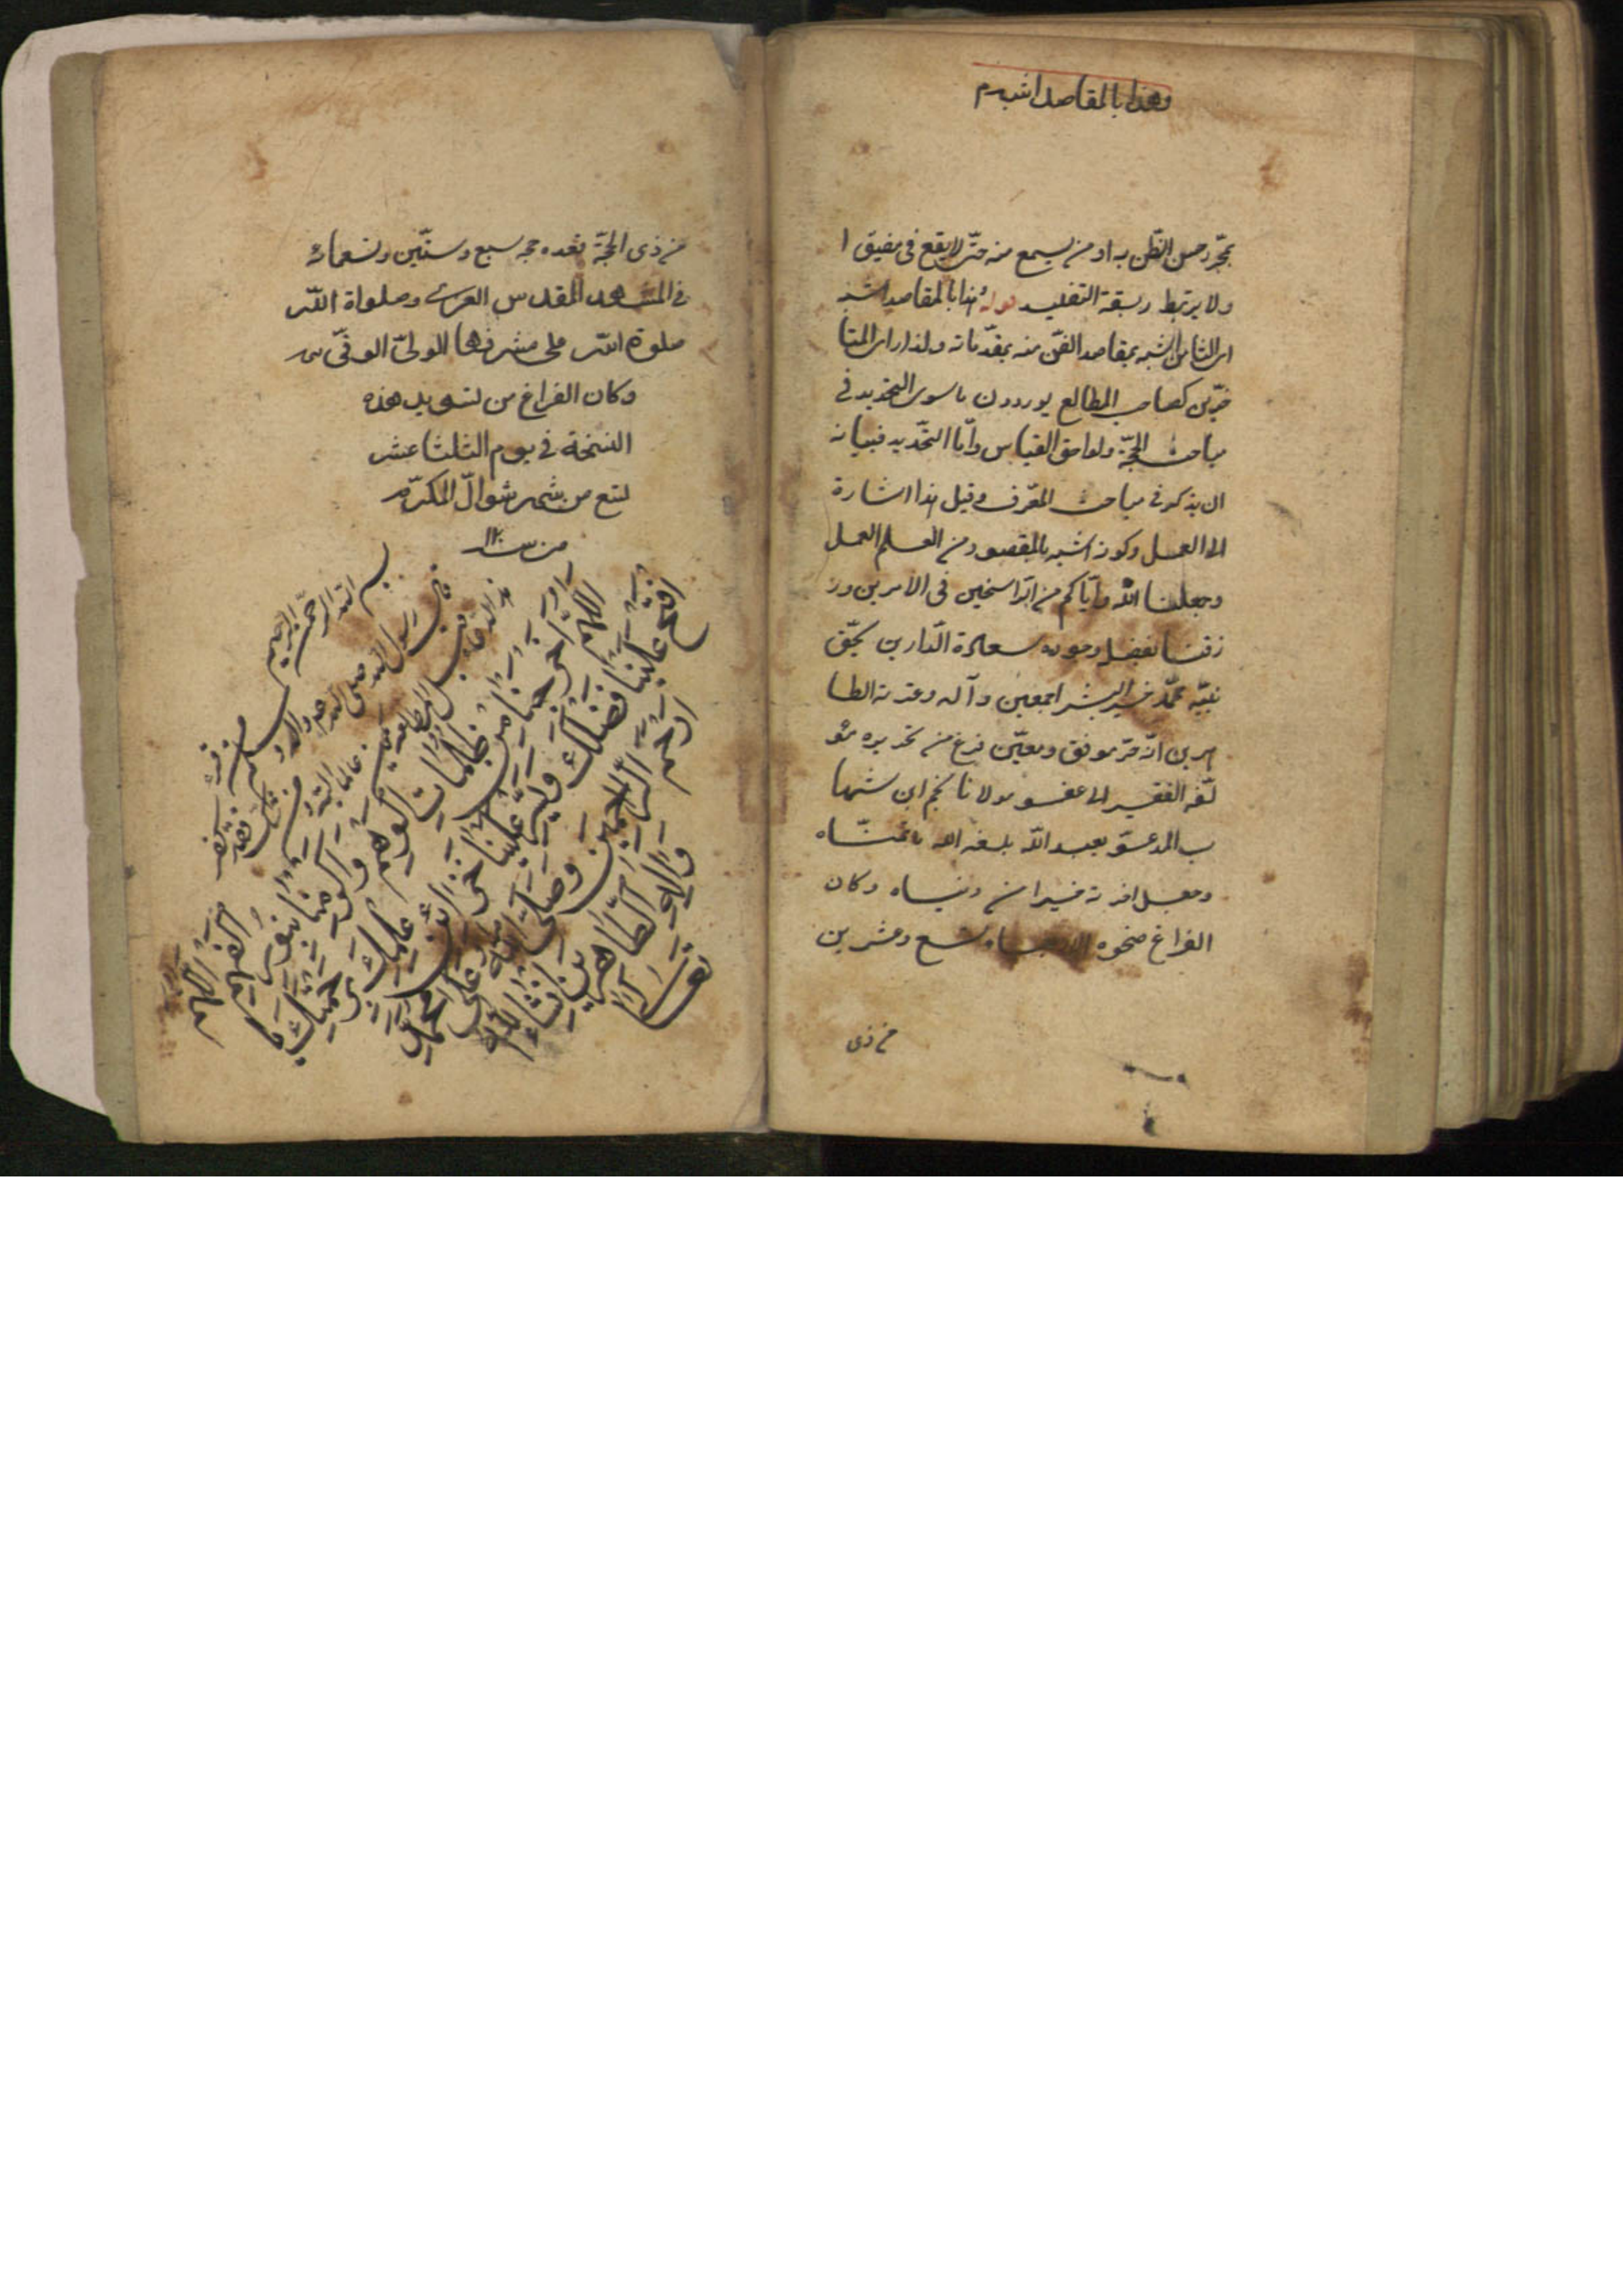 وهذا بالمقاصد اشبه م
بمجرد حسن الظن به او من يسمع منه حتى لا يقع فى مضيق ا
ولا يرتبط ربقة التقليد قوله وهذا بالمقاصد اشبه
اى الثامن اشبه بمقاصد الفن منه بمقدماته ولذا ترى المتا
خرين كصاحب المطالع يوردون ما سوى التحديد فى
مباحث الحجة ولواحق القياس واما التحديد فشانه
ان يذكر فى مباحث المعرف وقيل هذا اشارة
الى العمل وكونه اشبه بالمقصود من العلم العمل
وجعلنا الله واياكم من الراسخين فى الامرين ور
زقنا بفضله وجوده سعادة الدارين بحق
نبيه محمد خير البشر اجمعين وآله وعترته الطا
هرين انه خير موفق ومعين فرغ من تحريره مؤ
لفه الفقير الى عفو مولانا نجم ابن شها
ب المدعو بعبد الله بلغه الله ما تمناه
وجعل اخرته خيرا من دنياه وكان
الفراغ ضحوة الاربعاء تسع وعشرين
من ذى
من ذى الحجة سبع وستين وتسعمائة
فى المشهد المقدس الغروى وصلواة الله
صلوة الله على مشرفها الولى الوفى
وكان الفراغ من تسويد هذه
النسخة فى يوم الثلثا عشر
لتسع من شهر شوال المكرم
من سنة
بسم الله الرحمن الرحيم
قال رسول الله صلى الله عليه وآله وسلم من قرء
هذا الدعاء قبل المطالعة
اللهم اخرجنا من ظلمات الوهم واكرمنا بنور الفهم اللهم
افتح علينا فضلك وانشر علينا خزائن علمك برحمتك يا
ارحم الراحمين وصلى الله على محمد
وآله الطاهرين انشاء الله
تعالى